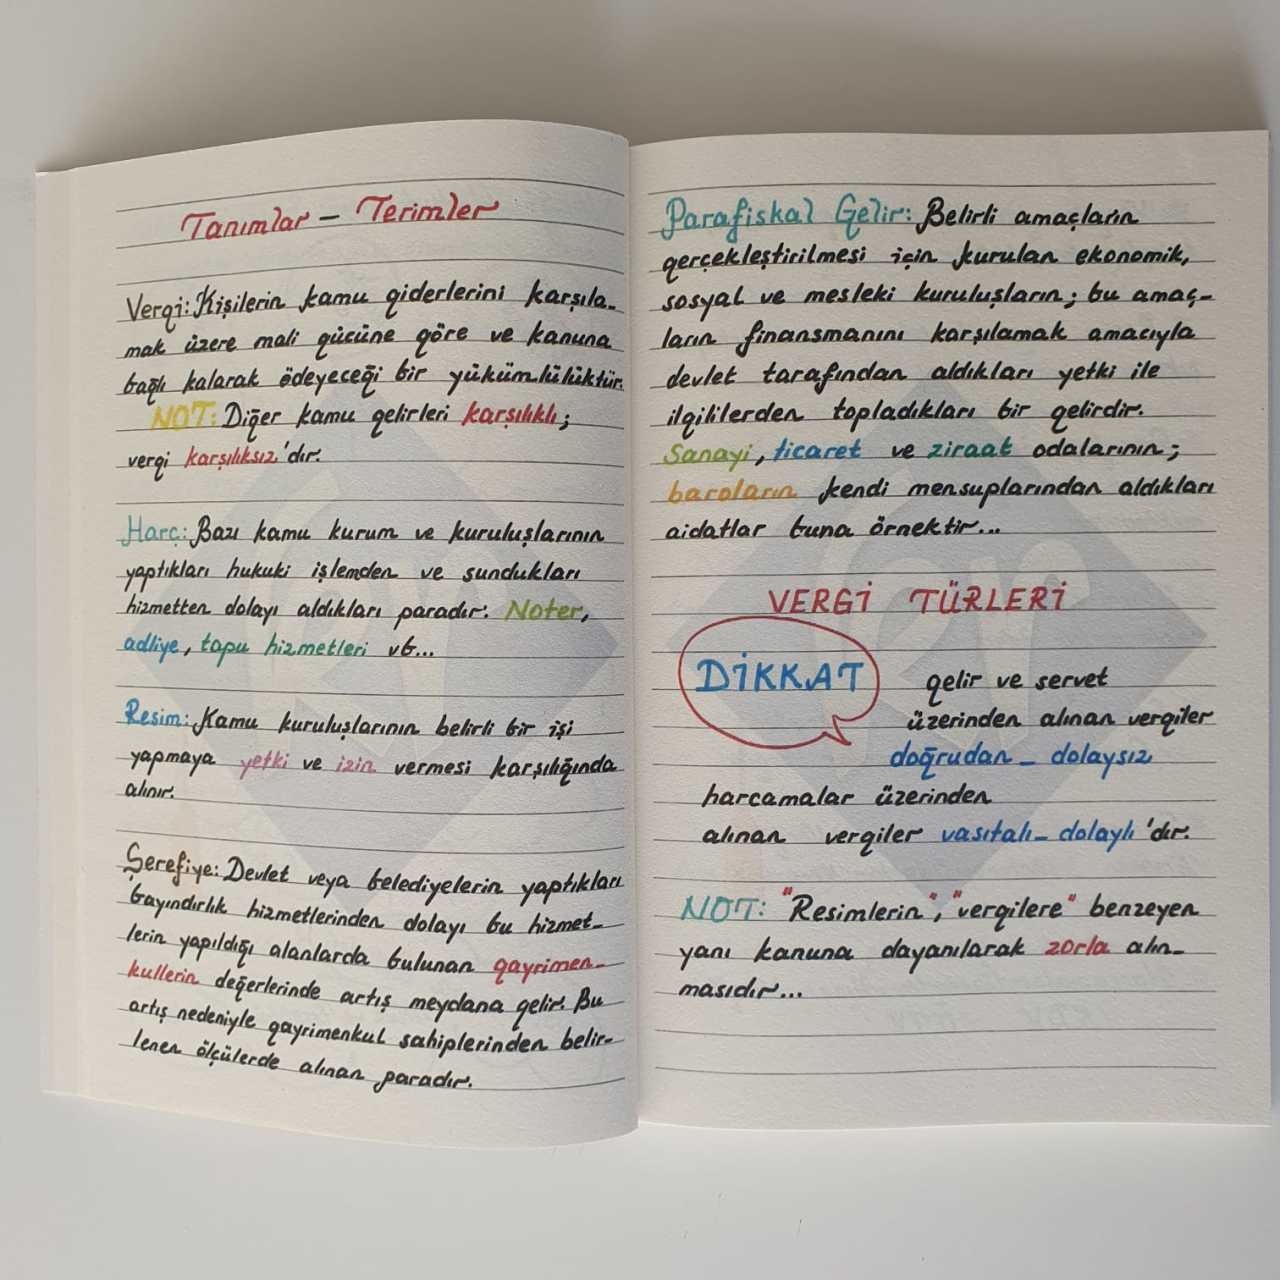 Tanımlar - Terimler
Vergi: Kişilerin kamu giderlerini karşıla-
mak üzere mali gücüne göre ve kanuna
bağlı kalarak ödeyeceği bir yükümlülüktür.
NOT: Diğer kamu gelirleri karşılıklı;
vergi karşılıksız'dır.
Harç: Bazı kamu kurum ve kuruluşlarının
yaptıkları hukuki işlemden ve sundukları
hizmetten dolayı aldıkları paradır. Noter,
adliye, tapu hizmetleri vb...
Resim: Kamu kuruluşlarının belirli bir işi
yapmaya yetki ve izin vermesi karşılığında
alınır.
Şerefiye: Devlet veya belediyelerin yaptıkları
bayındırlık hizmetlerinden dolayı bu hizmet-
lerin yapıldığı alanlarda bulunan gayrimen-
kullerin değerlerinde artış meydana gelir. Bu
artış nedeniyle gayrimenkul sahiplerinden belir-
lenen ölçülerde alınan paradır.
Parafiskal Gelir: Belirli amaçların
gerçekleştirilmesi için kurulan ekonomik,
sosyal ve mesleki kuruluşların; bu amaç-
ların finansmanını karşılamak amacıyla
devlet tarafından aldıkları yetki ile
ilgililerden topladıkları bir gelirdir.
Sanayi, ticaret ve ziraat odalarının;
baroların kendi mensuplarından aldıkları
aidatlar buna örnektir...
VERGİ TÜRLERİ
DİKKAT gelir ve servet
üzerinden alınan vergiler
doğrudan - dolaysız
harcamalar üzerinden
alınan vergiler vasıtalı - dolaylı 'dır.
NOT: "Resimlerin", "vergilere" benzeyen
yanı kanuna dayanılarak zorla alın-
masıdır...